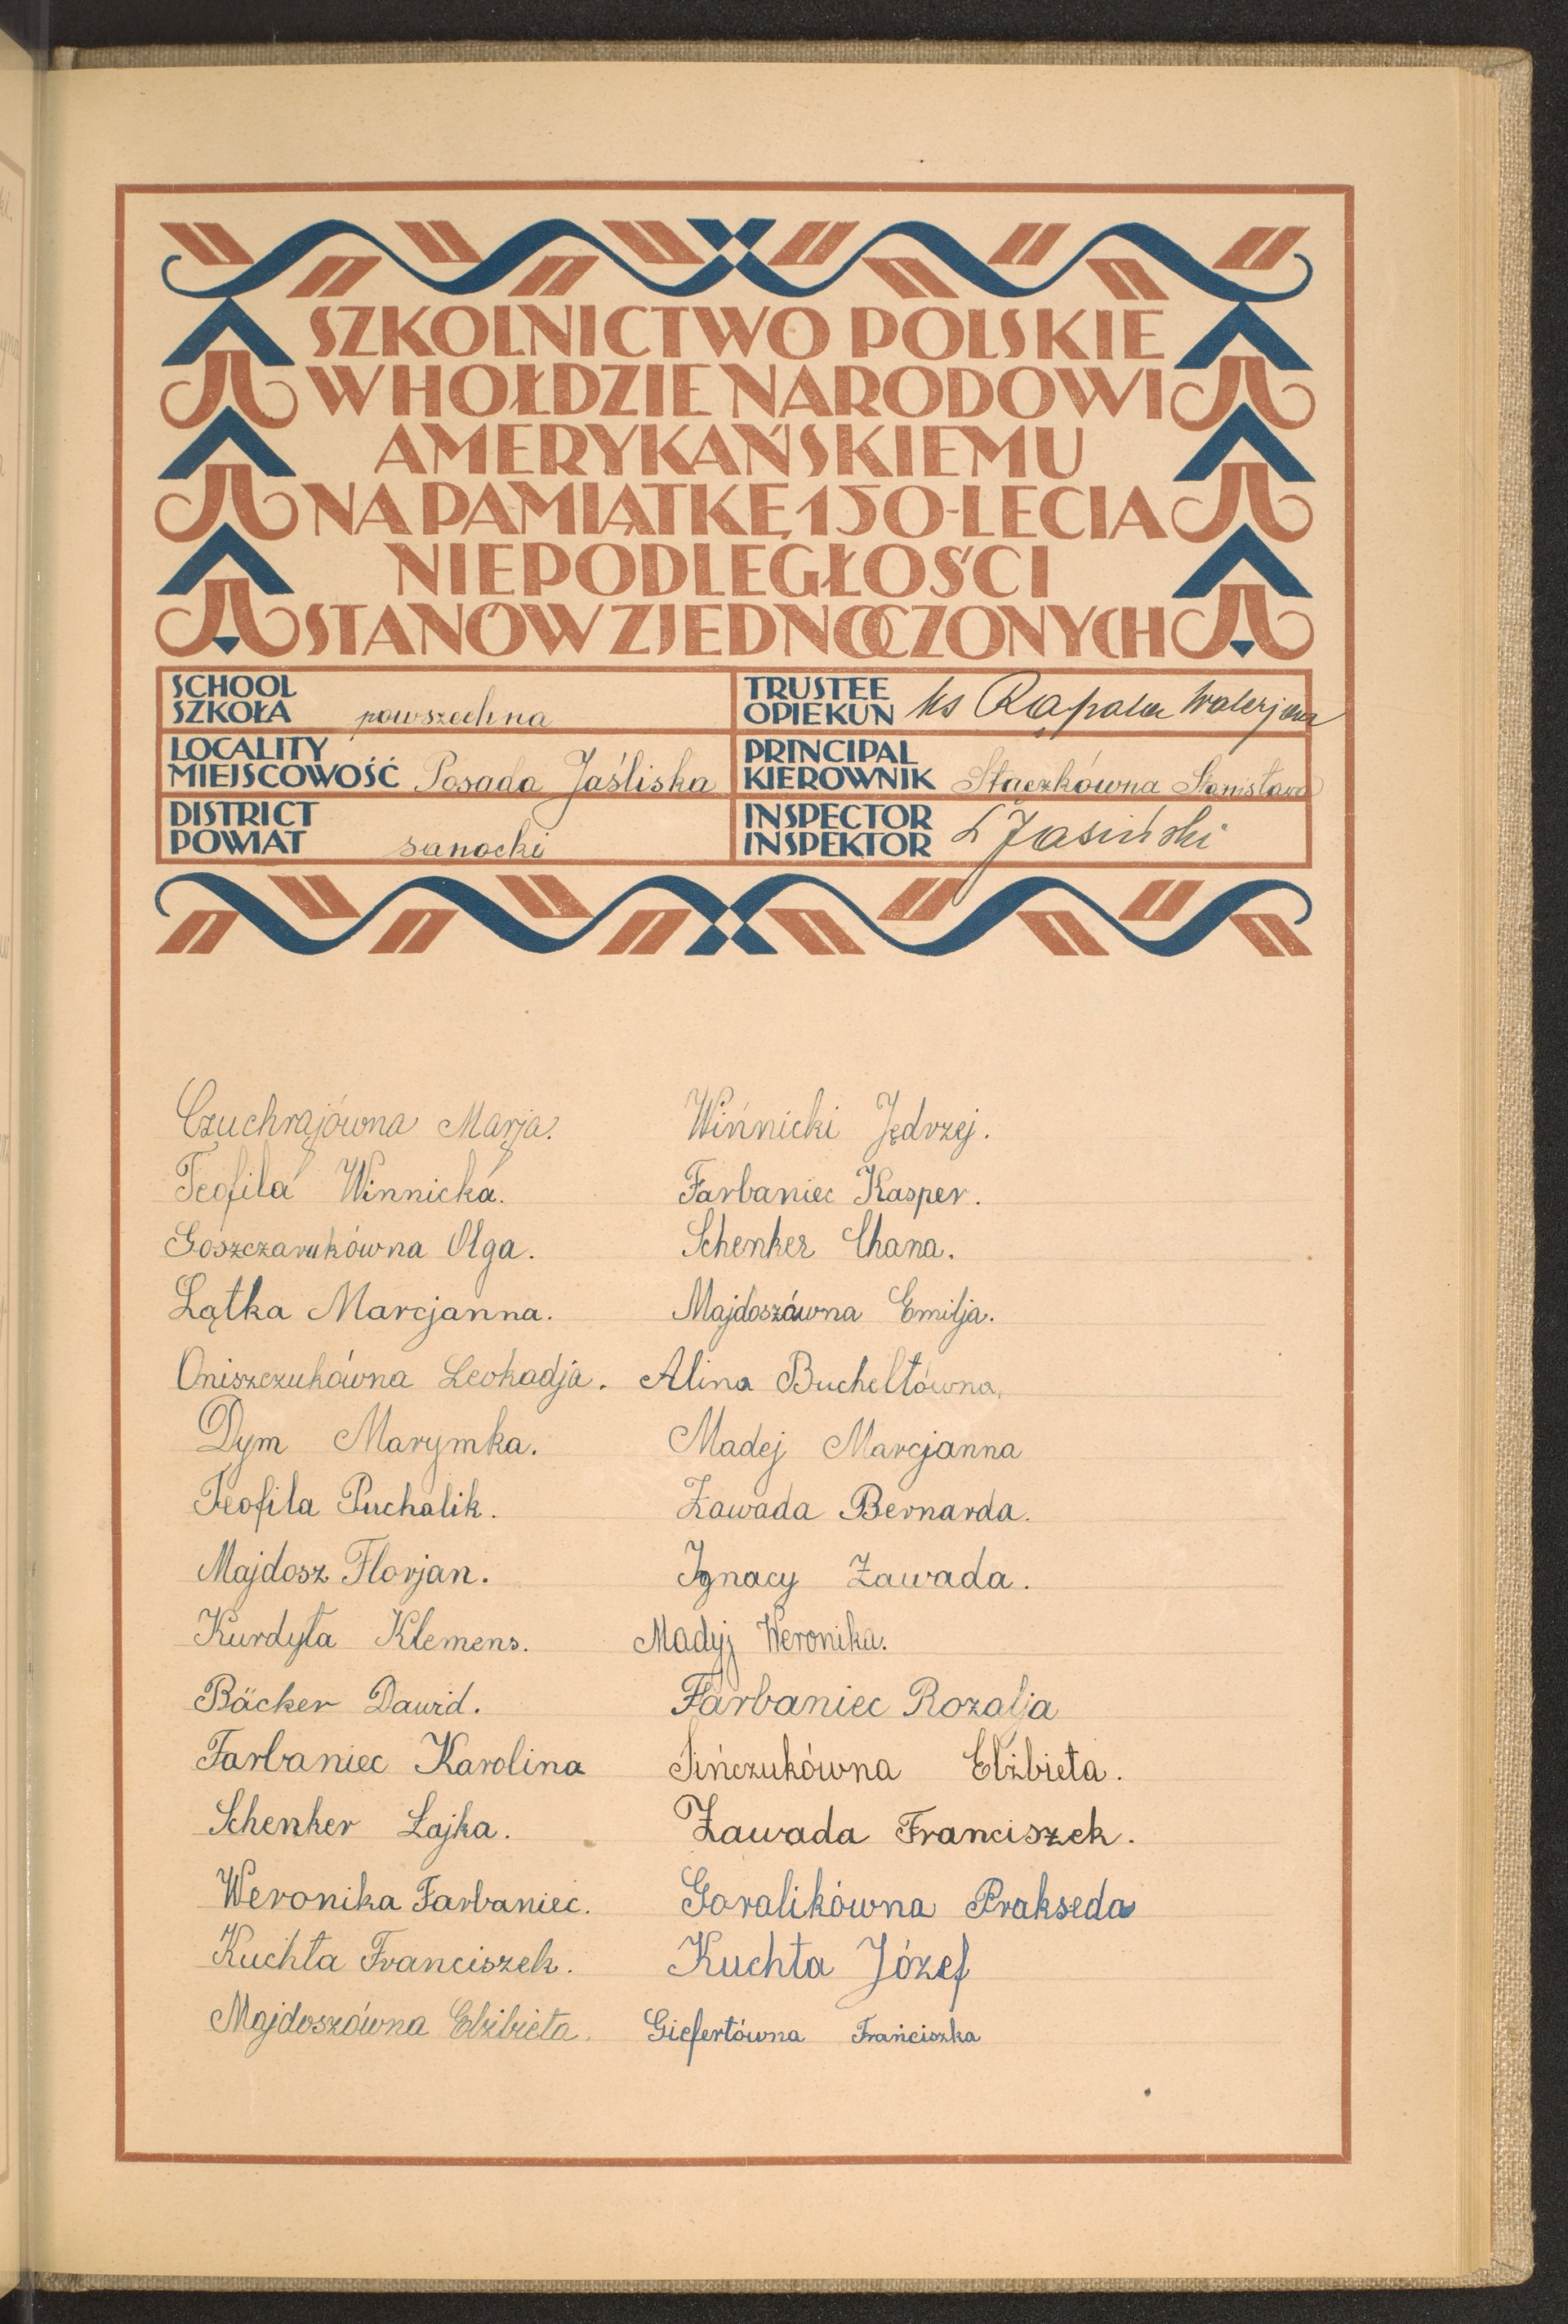 SZKOLNICTWO POLSKIE
W HOŁDZIE NARODOWI
AMERYKAŃSKIEMU
NA PAMIĄTKĘ 150-LECIA
NIEPODLEGŁOŚCI
STANÓW ZJEDNOCZONYCH
SCHOOL
SZKOŁA powszechna
TRUSTEE
OPIEKUN ks Rąpała Walerjan
LOCALITY
MIEJSCOWOŚĆ Posada Jaśliska
PRINCIPAL
KIEROWNIK Stączkówna Stanisława
DISTRICT
POWIAT sanocki
INSPECTOR
INSPEKTOR L Jasiński
Czuchrajówna Marja.
Teofila Winnicka.
Goszczarukówna Olga.
Łątka Marcjanna.
Oniszczukówna Leokadja.
Dym Marymka.
Teofila Puchalik.
Majdosz Florjan.
Kurdyła Klemens.
Bäcker Dawid.
Farbaniec Karolina
Schenker Łajka.
Weronika Farbaniec.
Kuchta Franciszek.
Majdoszówna Elżbieta.
Wińnicki Jędrzej.
Farbaniec Kasper.
Schenker Chana.
Majdoszówna Emilja.
Alina Bucheltówna,
Madej Marcjanna
Zawada Bernarda.
Ignacy Zawada.
Madyj Weronika.
Farbaniec Rozalja
Sińczukówna Elżbieta.
Zawada Franciszek.
Goralikówna Prakseda
Kuchta Józef
Giefertówna Frańciszka